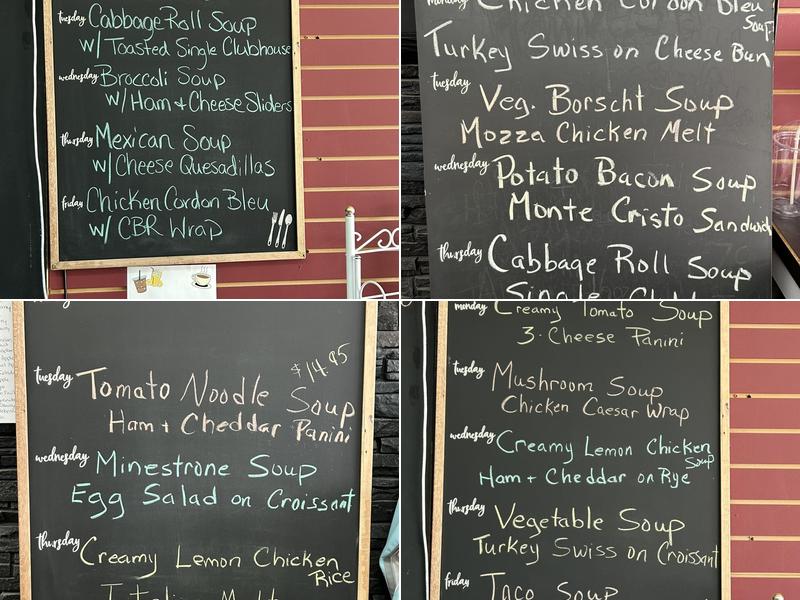 tuesday Cabbage Roll Soup
w/ Toasted Single Clubhouse
wednesday Broccoli Soup
w/ Ham + Cheese Sliders
thursday Mexican Soup
w/ Cheese Quesadillas
friday Chicken Cordon Bleu
w/ CBR Wrap
monday Chicken Cordon Bleu
Soup
Turkey Swiss on Cheese Bun
tuesday
Veg. Borscht Soup
Mozza Chicken Melt
wednesday Potato Bacon Soup
Monte Cristo Sandwich
thursday Cabbage Roll Soup
Single
$14.95
tuesday Tomato Noodle Soup
Ham + Cheddar Panini
wednesday Minestrone Soup
Egg Salad on Croissant
thursday Creamy Lemon Chicken
Rice
monday Creamy Tomato Soup
3-Cheese Panini
tuesday Mushroom Soup
Chicken Caesar Wrap
wednesday Creamy Lemon Chicken
Soup
Ham + Cheddar on Rye
thursday Vegetable Soup
Turkey Swiss on Croissant
friday Taco Soup